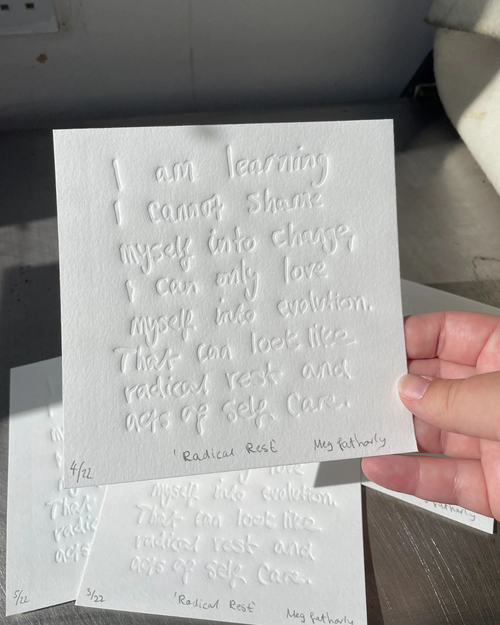 I am learning
I cannot shame
myself into change,
I can only love
myself into evolution.
That can look like
radical rest and
acts of self care.
4/22 'Radical Rest Meg Fatharly
myself into evolution.
That can look like
radical rest and
acts of self care.
3/22 'Radical Rest Meg Fatharly
That
radic
acts
5/22
Fatharly